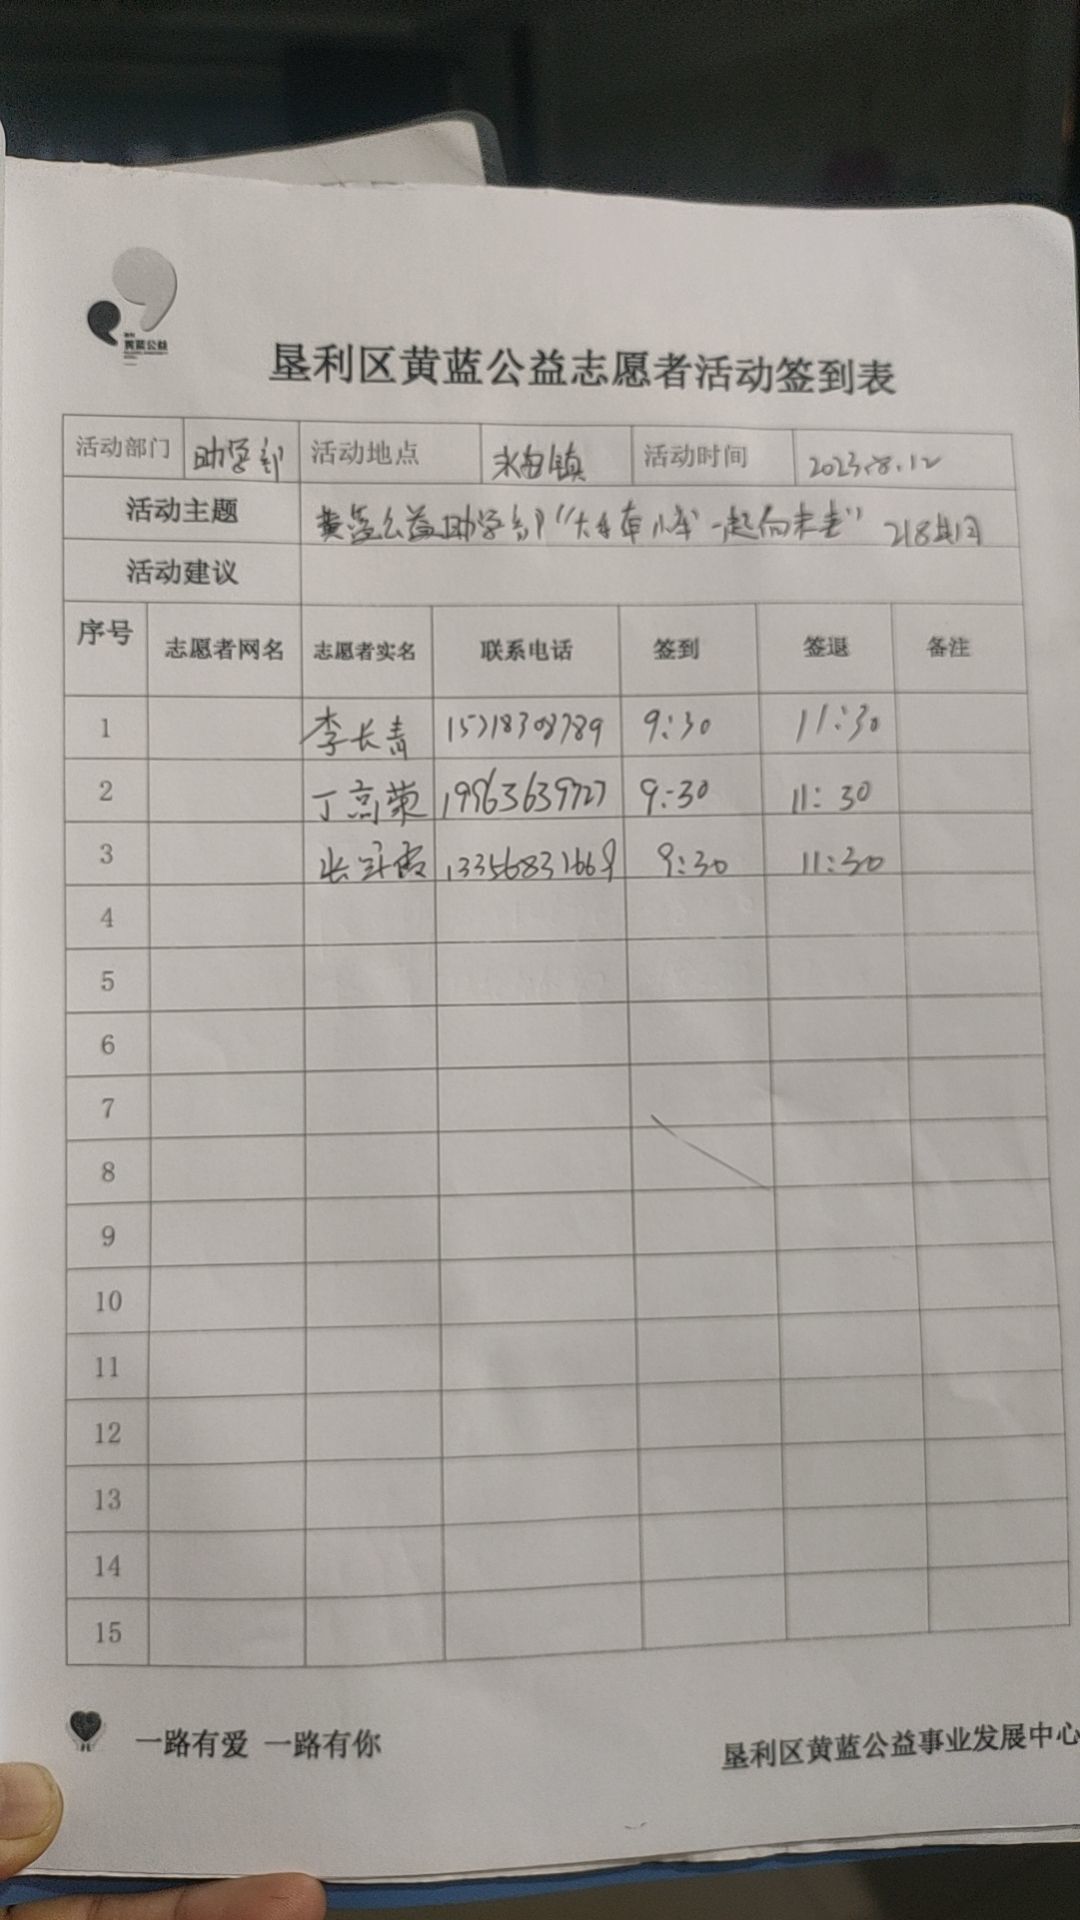 黄蓝公益
垦利区黄蓝公益志愿者活动签到表
活动部门 助学部 活动地点 永安镇 活动时间 2023.8.12
活动主题 黄蓝公益助学部"大手牵小手 一起向未来" 218期
活动建议
序号 志愿者网名 志愿者实名 联系电话 签到 签退 备注
1 李长青 15718308789 9:30 11:30
2 丁高荣 19963639727 9:30 11:30
3 张 霞 13356831669 9:30 11:30
4
5
6
7
8
9
10
11
12
13
14
15
一路有爱 一路有你
垦利区黄蓝公益事业发展中心